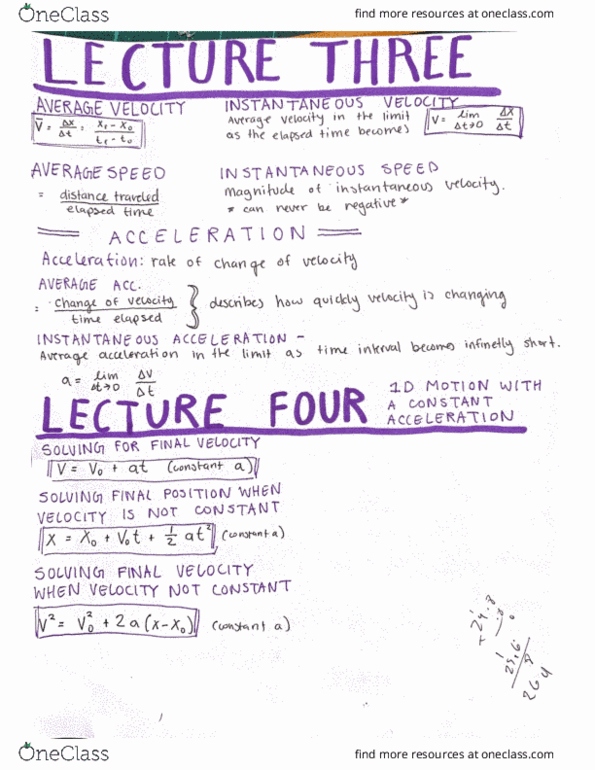 OneClass
find more resources at oneclass.com
LECTURE THREE
AVERAGE VELOCITY
V̅ = Δx/Δt = x₁ - x₀ / t₁ - t₀
INSTANTANEOUS VELOCITY
Average velocity in the limit
as the elapsed time becomes)
V = lim Δt→0 Δx/Δt
AVERAGE SPEED
= distance traveled
elapsed time
INSTANTANEOUS SPEED
magnitude of instantaneous velocity.
* can never be negative *
ACCELERATION
Acceleration: rate of change of velocity
AVERAGE ACC.
= change of velocity
time elapsed
} describes how quickly velocity is changing
INSTANTANEOUS ACCELERATION -
Average acceleration in the limit as time interval becomes infinetly short.
a = lim Δt→0 ΔV/Δt
LECTURE FOUR
1D MOTION WITH
A CONSTANT
ACCELERATION
SOLVING FOR FINAL VELOCITY
V = V₀ + at (constant a)
SOLVING FINAL POSITION WHEN
VELOCITY IS NOT CONSTANT
X = X₀ + V₀t + ½ at² (constant a)
SOLVING FINAL VELOCITY
WHEN VELOCITY NOT CONSTANT
V² = V₀² + 2a(x-x₀) (constant a)
OneClass
find more resources at oneclass.com